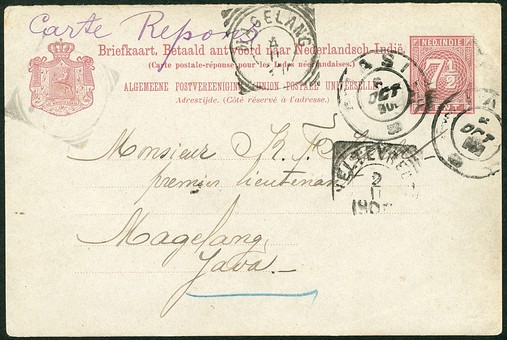 Carte Repons
Briefkaart. Betaald antwoord naar Nederlandsch-Indië.
(Carte postale-réponse pour les Indes néerlandaises.)
ALGEMEENE POSTVEREENIGING (UNION POSTALE UNIVERSELLE)
Adreszijde. (Côté réservé à l'adresse.)
NED. INDIE
7½
MAGELANG
OCT
OCT
WELTEVREDEN
2
11
Monsieur K. F.
premier lieutenant
Magelang,
Java.—